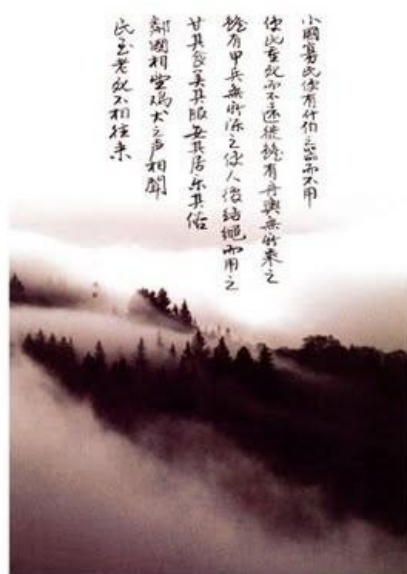 小國寡民使有什伯之器而不用
使民重死而不遠徙雖有舟輿無所乘之
雖有甲兵無所陳之使人復結繩而用之
甘其食美其服安其居乐其俗
鄰國相望鸡犬之声相聞
民至老死不相往来